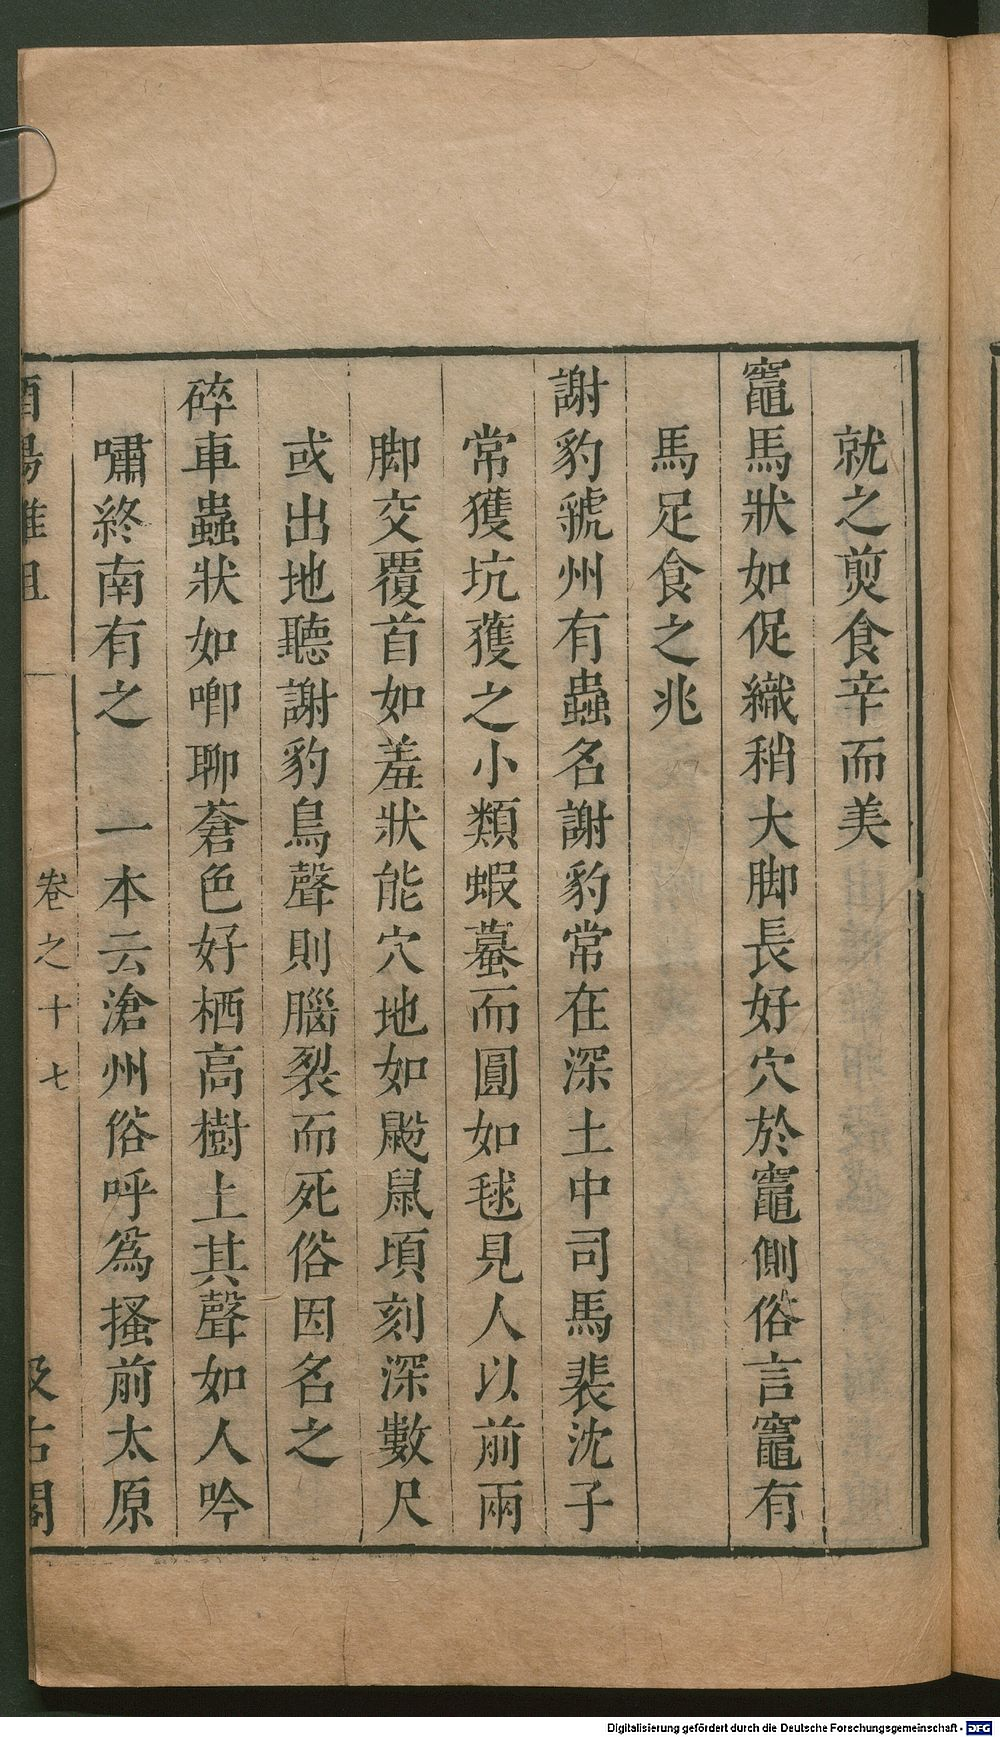 就之煎食辛而美
竈馬狀如促織稍大脚長好穴於竈側俗言竈有
馬足食之兆
謝豹虢州有蟲名謝豹常在深土中司馬裴沈子
常獲坑獲之小類蝦蟇而圓如毬見人以前兩
脚交覆首如羞狀能穴地如鼢鼠頃刻深數尺
或出地聽謝豹鳥聲則腦裂而死俗因名之
碎車蟲狀如唧聊蒼色好栖高樹上其聲如人吟
嘯終南有之　一本云滄州俗呼爲搔前太原
酉陽雜俎　卷之十七　汲古閣
Digitalisierung gefördert durch die Deutsche Forschungsgemeinschaft - DFG